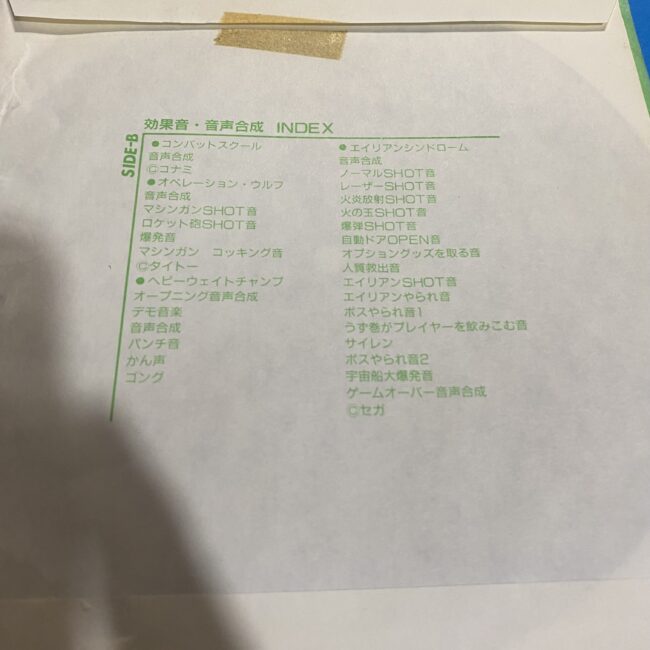 効果音・音声合成 INDEX
SIDE-B
●コンバットスクール
音声合成
Ⓒコナミ
●オペレーション・ウルフ
音声合成
マシンガンSHOT音
ロケット砲SHOT音
爆発音
マシンガン コッキング音
Ⓒタイトー
●ヘビーウェイトチャンプ
オープニング音声合成
デモ音楽
音声合成
パンチ音
かん声
ゴング
●エイリアンシンドローム
音声合成
ノーマルSHOT音
レーザーSHOT音
火炎放射SHOT音
火の玉SHOT音
爆弾SHOT音
自動ドアOPEN音
オプショングッズを取る音
人質救出音
エイリアンSHOT音
エイリアンやられ音
ボスやられ音1
うず巻がプレイヤーを飲みこむ音
サイレン
ボスやられ音2
宇宙船大爆発音
ゲームオーバー音声合成
Ⓒセガ